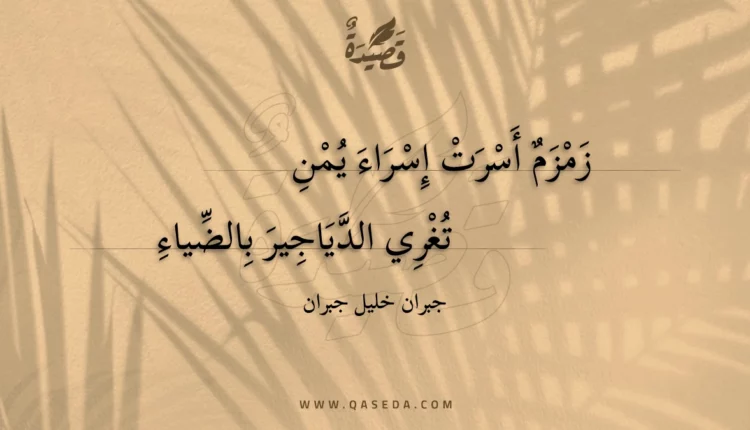 قَصِيدَةٌ
زَمْزَمٌ أَسْرَتْ إِسْرَاءَ يُمْنِ
تُغْرِي الدَّيَاجِيرَ بِالضِّياءِ
جبران خليل جبران
WWW.QASEDA.COM